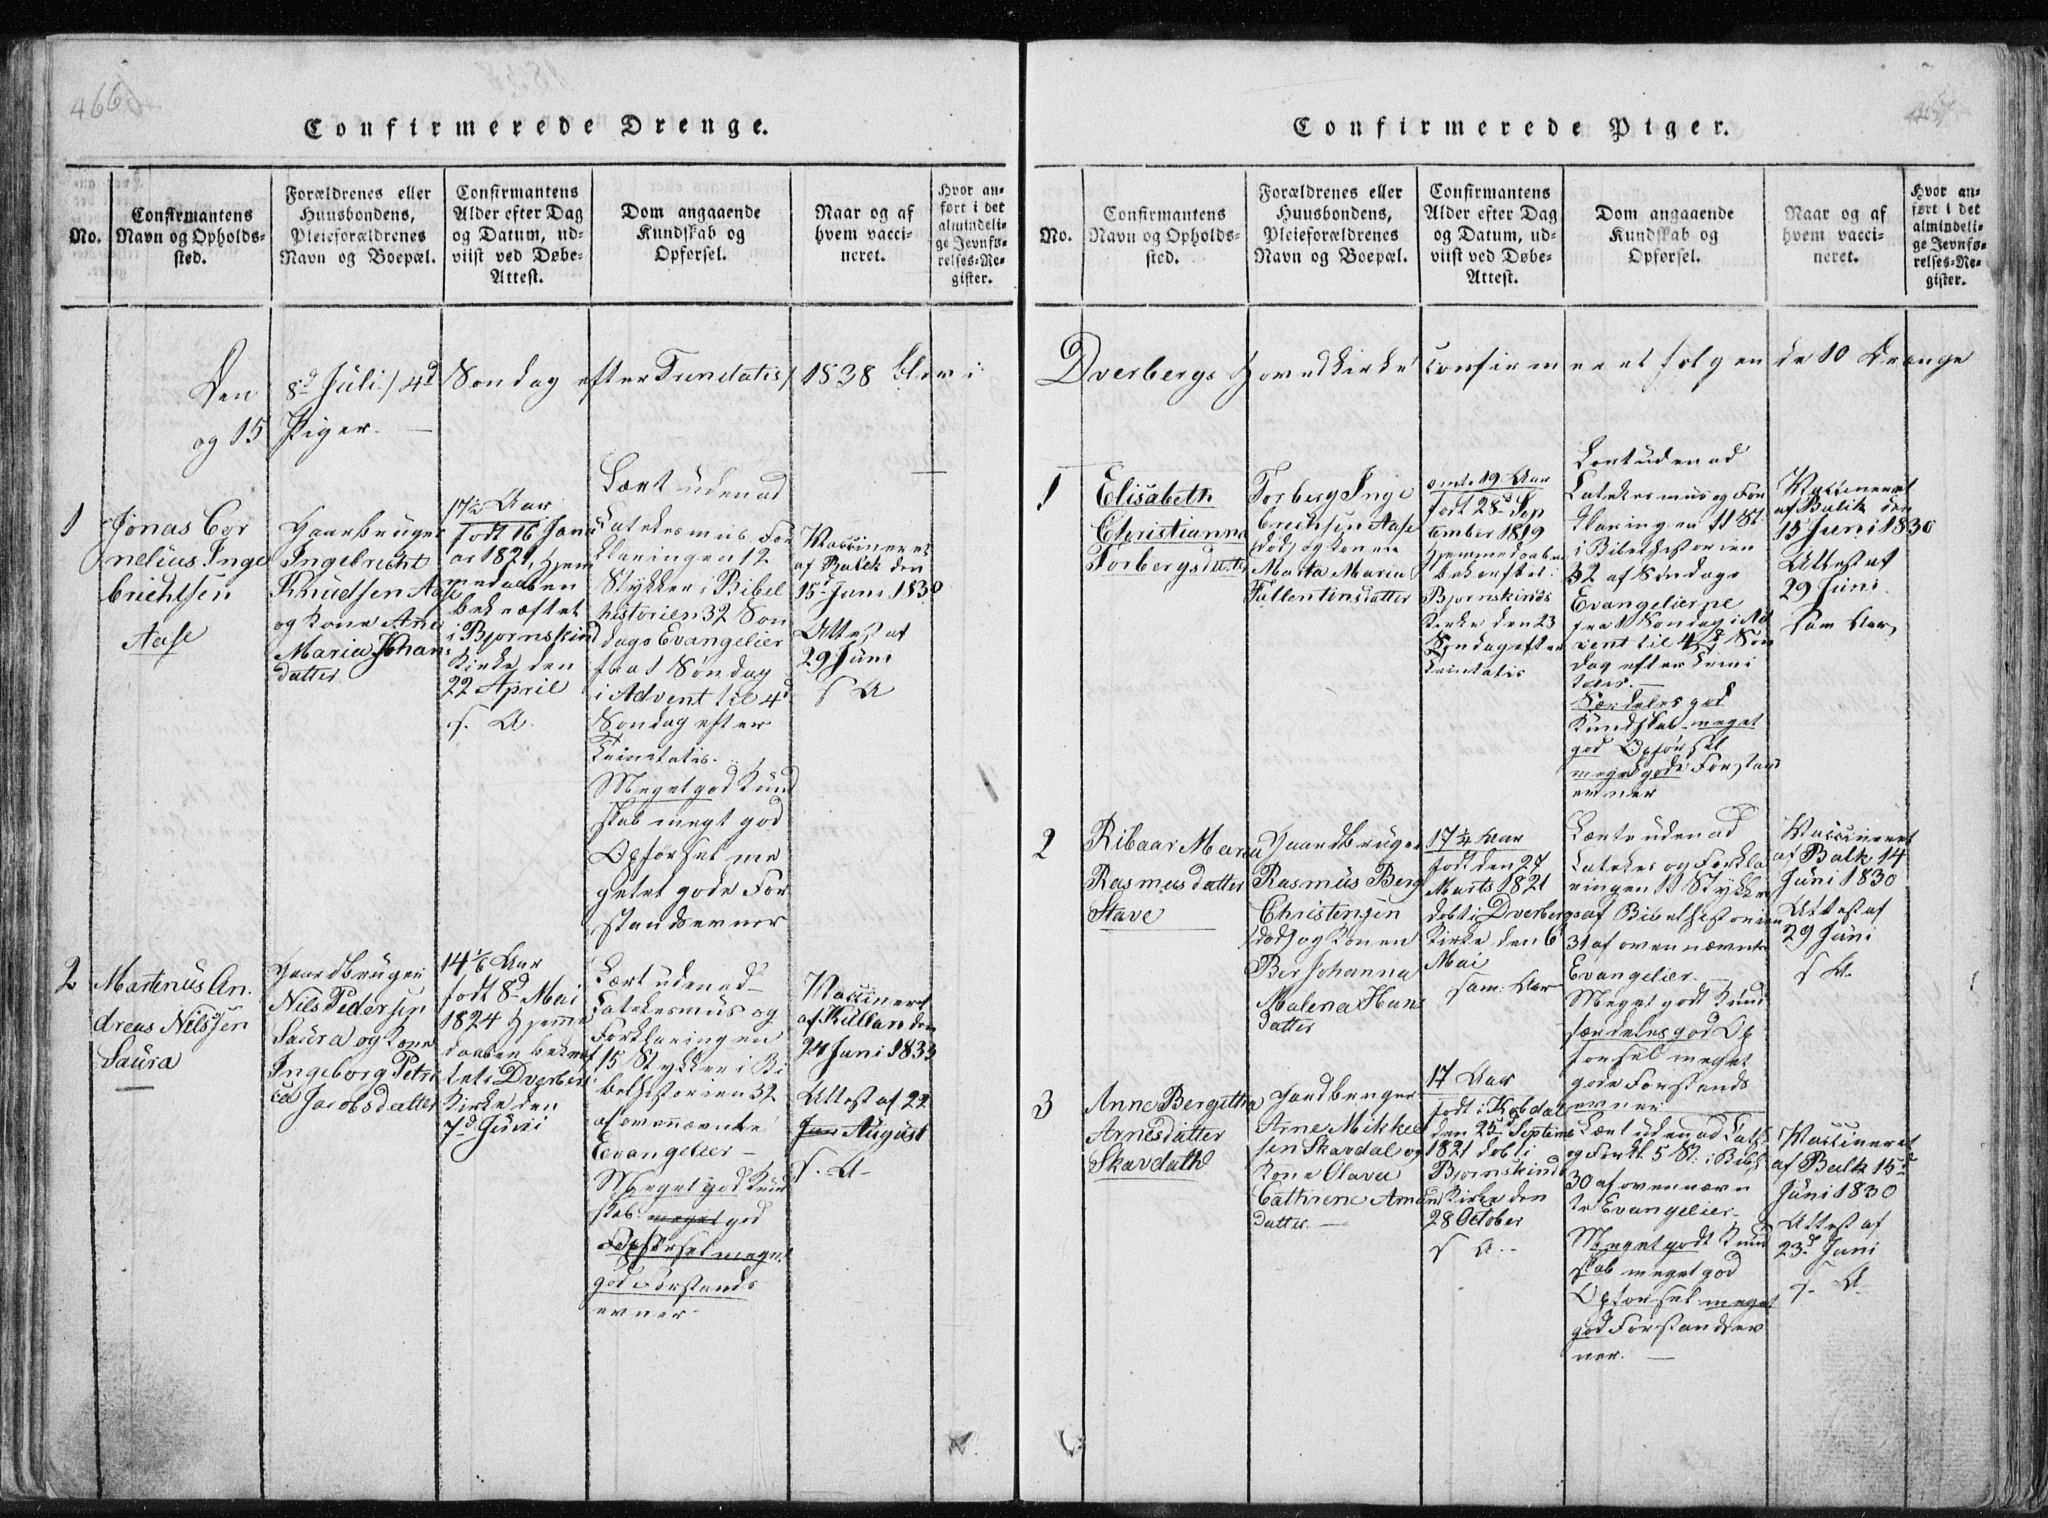 466
Confirmerede Drenge.
No.
Confirmantens
Navn og Opholds-
sted.
Forældrenes eller
Huusbondens,
Pleieforældrenes
Navn og Boepæl.
Confirmantens
Alder efter Dag
og Datum, ud-
viist ved Døbe-
Attest.
Dom angaaende
Kundskab og
Opførsel.
Naar og af
hvem vacci-
neret.
Hvor an-
ført i det
almindeli-
ge Jevnfø-
relses-Re-
gister.
Den 8d Juli / 4d Søndag efter Trinitatis / 1838 blev i
og 15 Piger.
1
Jonas Cor
nelius Inge
brichtsen
Aase
Gaardbruger
Ingebrecht
Knudsen Aase
og Kone Ane
Maria Johan
datter
17½ Aar
født 16 Janu
ar 1821, Hjem
medaaben
bekræftet
i Bjørnskind
Kirke den
22 April
s. A.
Lært udenad
Katekesmus For
klaringen 12
Stykker i Bibel
historien 32 Søn
dags Evangelier
fra 1 Søndag
i Advent til 4d
Søndag efter
Trinitatis.
Meget god Kund
skab megt god
Opførsel me
getet gode For
standsevner
Vaccineret
af Balck den
15d Juni 1830
Attest af
29 Juni
s A
2
Martinus An
dreas Nilssen
Saura
Gaardbruger
Nils Pedersen
Saura og Kone
Ingeborg Petri
ca Jacobsdatter
14 1/6 Aar
født 8d Mai
1824 Hjemme
daaben bekræf
tet i Dverberg
Kirke den
7d Juni
Lært udenad
Katekesmus og
Forklaringen
15 Stykker i Bi
belhistorien 32
af ovennævnte
Evangelier
Meget god Kund
skab meget god
Opførsel meget
god Forstands
evner
Vaccineret
af Killan den
24 Juni 1833
Attest af 22
Jun August
s. A
Confirmerede Piger.
No.
Confirmantens
Navn og Opholds-
sted.
Forældrenes eller
Huusbondens,
Pleieforældrenes
Navn og Boepæl.
Confirmantens
Alder efter Dag
og Datum, ud-
viist ved Døbe-
Attest.
Dom angaaende
Kundskab og
Opførsel.
Naar og af
hvem vacci-
neret.
Hvor an-
ført i det
almindeli-
ge Jevnfø-
relses-Re-
gister.
Dverbergs Hovedkirke confirmeret følgende 10 Drenge
1
Elisabeth
Christianna
Torbergsdatter
Torberg Inge
brechtsen Aase
(død) og Konen
Marta Maria
Fallentinsdatter
omt. 19 Aar
født 28d Sep
tember 1819
Hjemmedaaben
bekræftet i
Bjørnskinds
Kirke den 23
Søndag efter
Trinitatis
Lært udenad
Katekesmus og For
klaringen 11 St.
i Bibelhistorien
32 af Søndags
Evangelierne
fra 1 Søndag i Ad
vent til 4d Søn
dag efter Trini
tatis.
Særdeles god
Kundskab meget
god Opførsel
meget gode Forstand
evner
Vaccineret
af Balck den
15 Juni 1830
Attest af
29 Juni
sam Aar
2
Ribaar Maria
Rasmusdatter
Stave
Gaardbruger
Rasmus Berg
Christensen
(død) og Konen
Ber Johanna
Malena Hans
datter
17 ¼ Aar
født den 27
Marts 1821
døbt i Dverbergs
Kirke den 6
Mai
sam: Aar
Lærte udenad
Katekes og Forkla
ringen 11 Stykker
af Bibelhistorien
31 af ovennævnte
Evangelier
Meget godt Kund
særdeles god Op
førsel meget
gode Forstands
evner
Vaccineret
af Balk 14
Juni 1830
Attest af
29 Juni
s A.
3
Anne Bergitha
Arnesdatter
Skavdahl
Gaardbruger
Arne Mikkel
sen Skavdal og
Kone Olava
Cathrine Aman
datter
17 Aar
født i Kobdal
den 25d Septemb
1821 døbt i
Bjørnskinds
Kirke den
28 October
s A.
Lært udenad Kath.
og Forkl. 5 St. i Bibh
30 af ovennævn
te Evangelier
Meget godt Kund
skab meget god
Opførsel meget
god Forstandsev
ner.
Vaccineret
af Balk 15d
Juni 1830
Attest af
23d Juni
s. A.